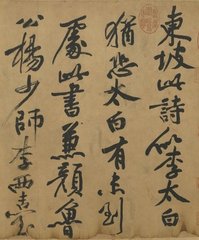 東坡此詩似李太白
猶恐太白有未到
處此書兼顏魯
公楊少師李西臺